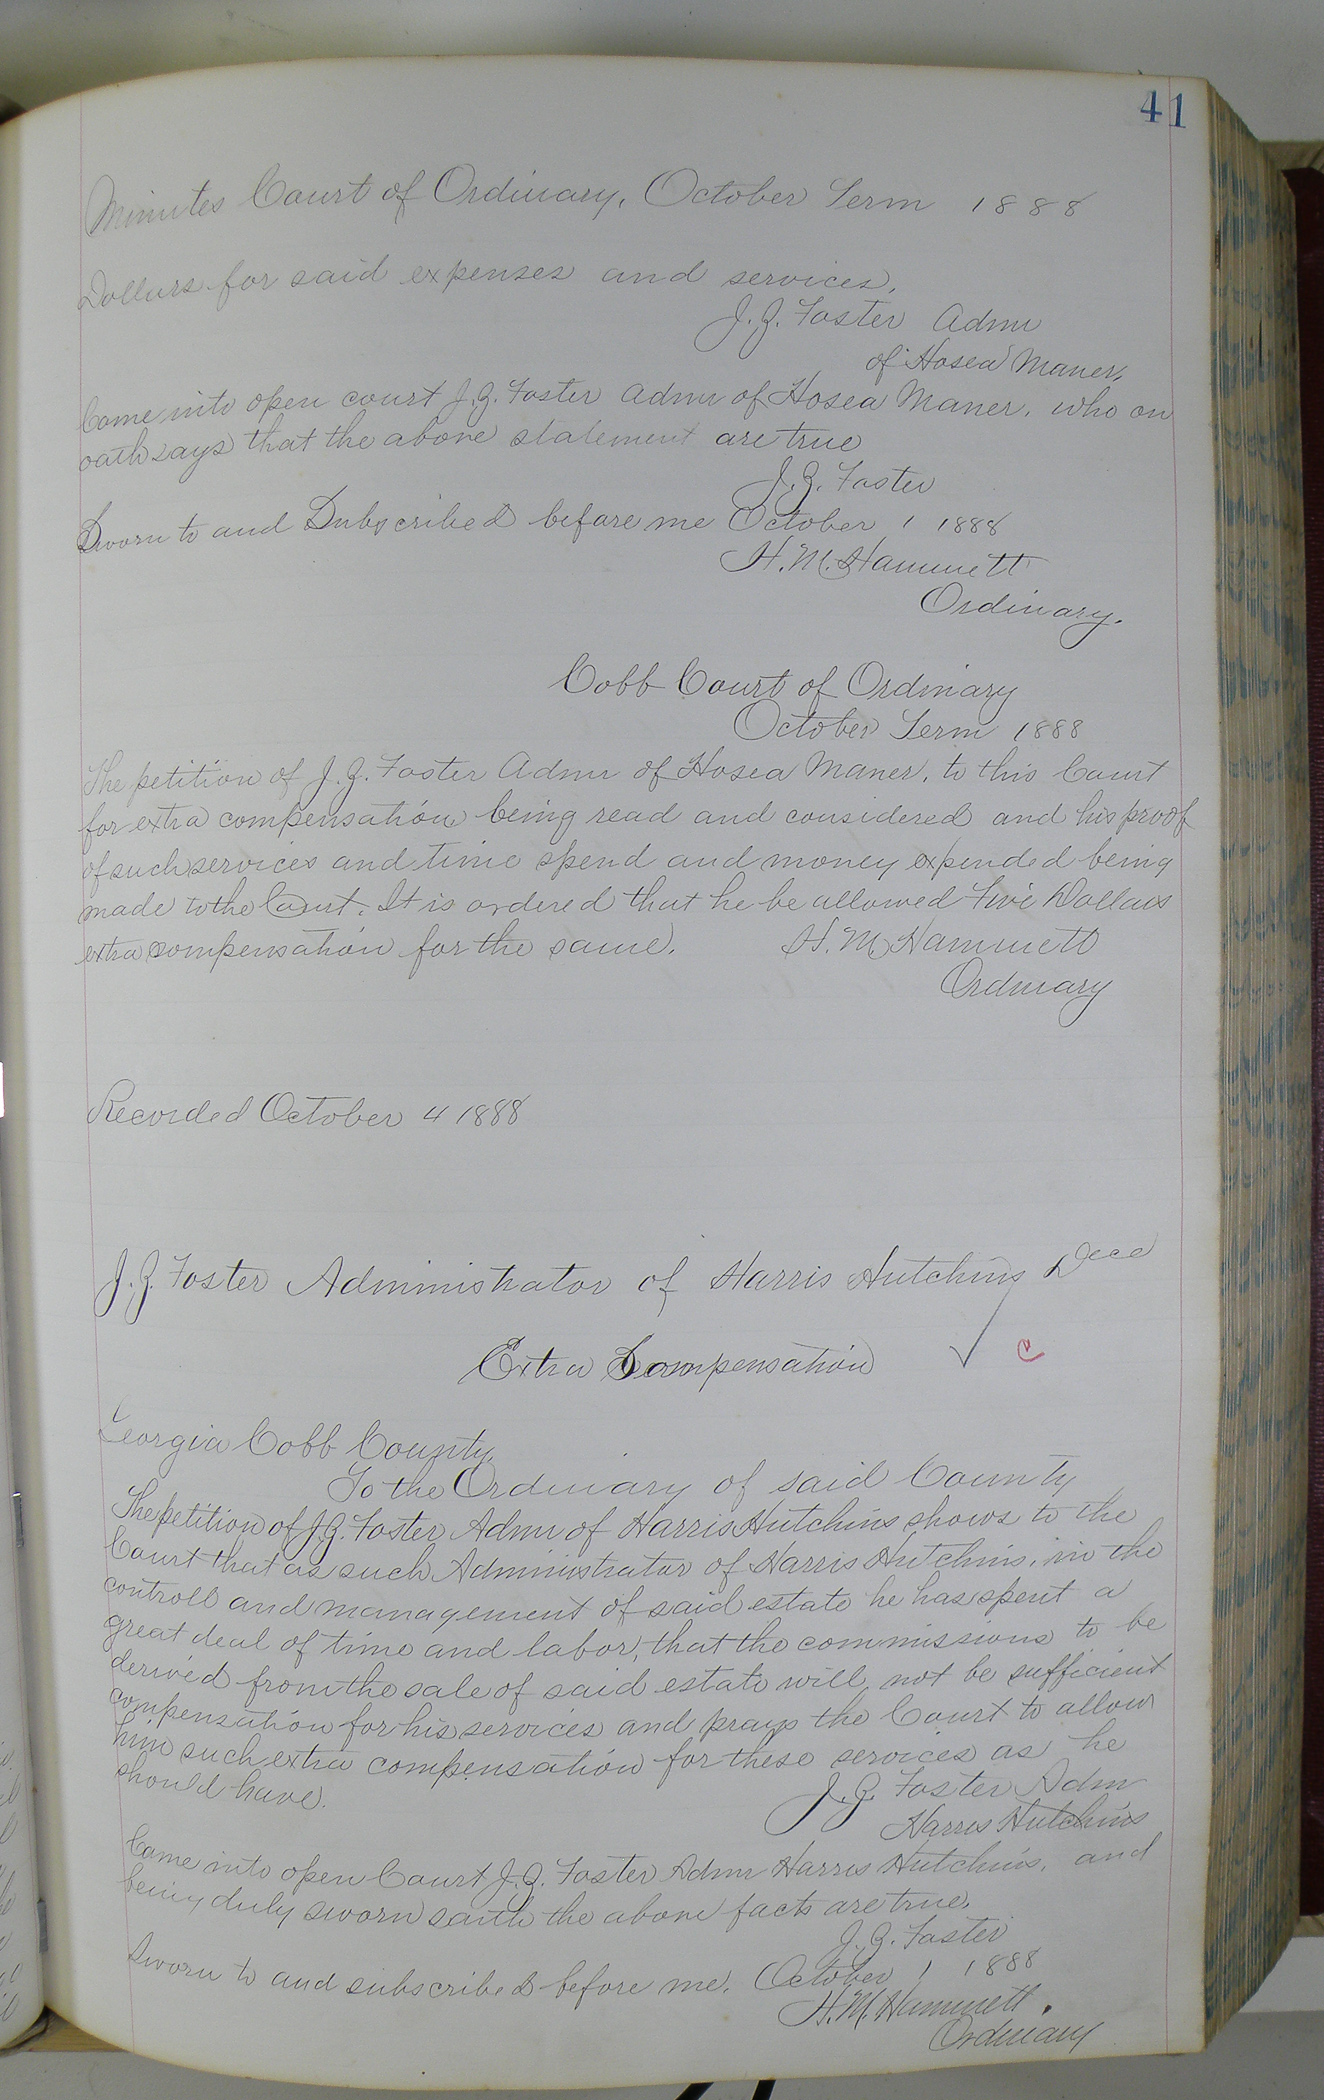 41
Minutes Court of Ordinary, October Term 1888
Dollars for said expenses and services.
J. G. Foster Admr
of Hosea Maner.
Came into open court J. G. Foster Admr of Hosea Maner, who on
oath says that the above statement are true
J. G. Foster
Sworn to and Subscribed before me October 1 1888
H. M. Hammett
Ordinary.
Cobb Court of Ordinary
October Term 1888
The petition of J. G. Foster Admr of Hosea Maner, to this Court
for extra compensation being read and considered and his proof
of such services and time spend and money expended being
made to the Court. It is ordered that he be allowed five Dollars
extra compensation for the same. H. M. Hammett
Ordinary
Recorded October 4 1888
J. G. Foster Administrator of Harris Hutchins Decd
Extra Compensation
Georgia Cobb County,
To the Ordinary of said County
The petition of J. G. Foster Admr of Harris Hutchins shows to the
Court that as such Administrator of Harris Hutchins, in the
controll and management of said estate he has spent a
great deal of time and labor, that the commissions to be
derived from the sale of said estate will not be sufficient
compensation for his services and prays the Court to allow
him such extra compensation for these services as he
should have.
J. G. Foster Adm
Harris Hutchins
Came into open Court J. G. Foster Admr Harris Hutchins, and
being duly sworn saith the above facts are true.
J. G. Foster
Sworn to and subscribed before me. October 1 1888
H. M. Hammett.
Ordinary